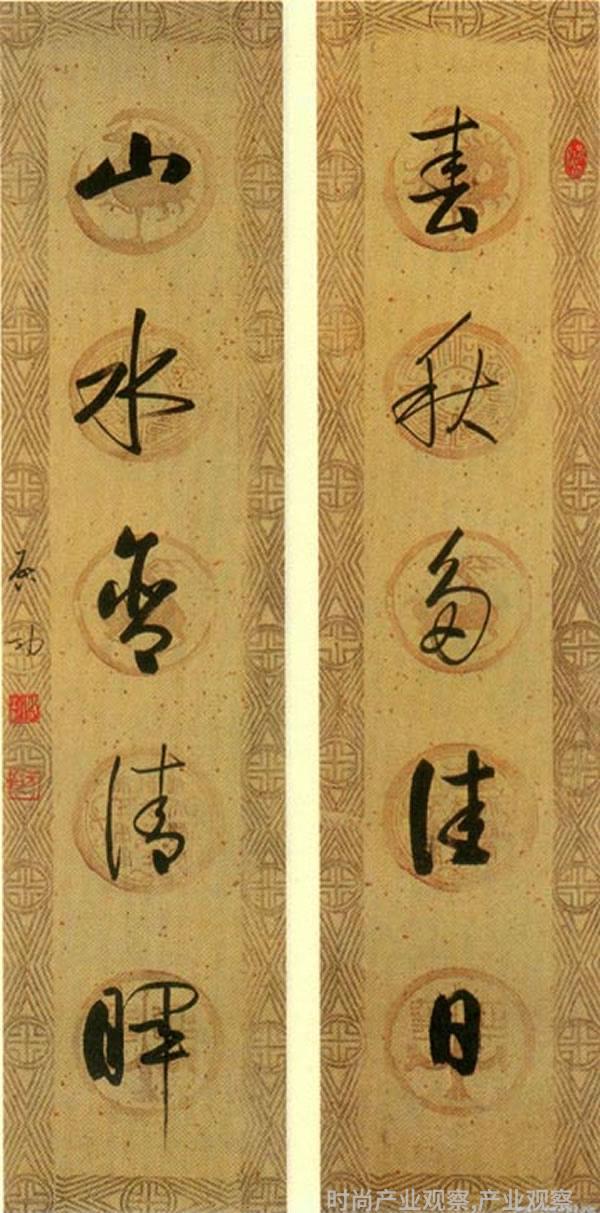 春秋多佳日
山水含清晖
启功
时尚产业观察,产业观察